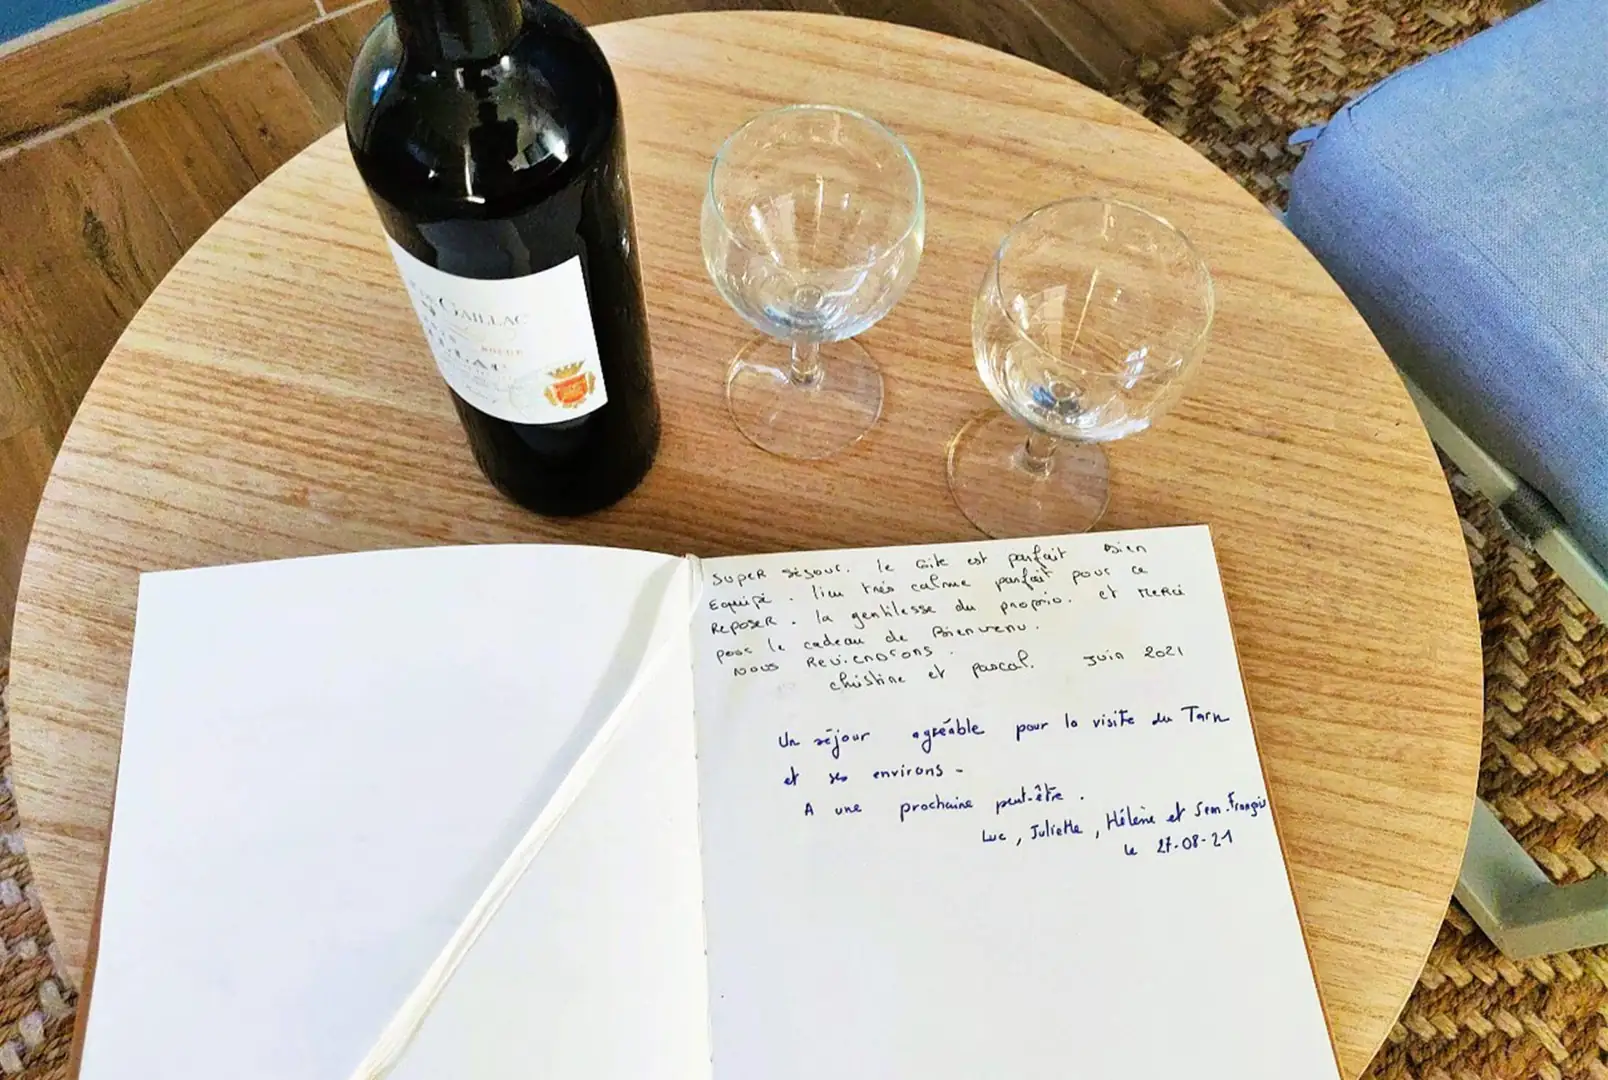 GAILLAC
SUPER séjour. le Gite est parfait Bien
Equipé. lieu très calme parfait pour ce
REPOSER. la gentilesse du proprio. et merci
pour le cadeau de Bienvenu.
NOUS REViENDrONS.
christine et pascal. Juin 2021
Un séjour agréable pour la visite du Tarn
et ses environs -
A une prochaine peut-être.
Luc, Juliette, Hélène et
le 27-08-21